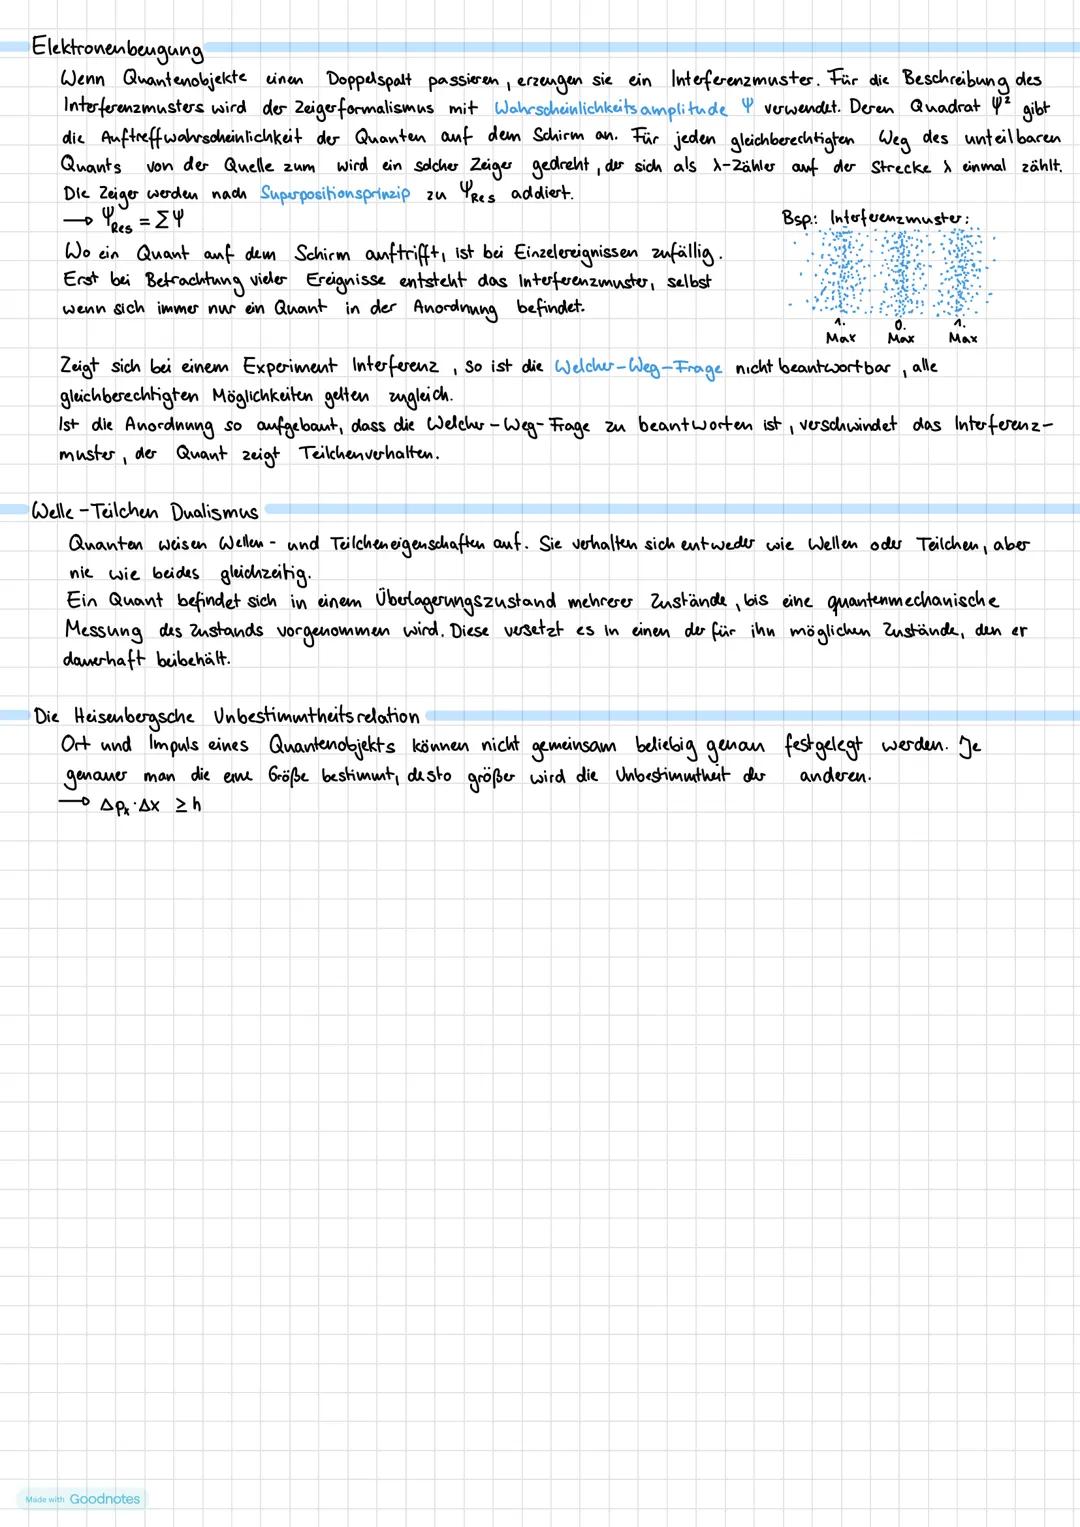 Elektronenbeugung
Wenn Quantenobjekte einen Doppelspalt passieren, erzeugen sie ein Interferenzmuster. Für die Beschreibung des
Interferenzmusters wird der Zeigerformalismus mit Wahrscheinlichkeitsamplitude Ψ verwendet. Deren Quadrat Ψ² gibt
die Auftreffwahrscheinlichkeit der Quanten auf dem Schirm an. Für jeden gleichberechtigten Weg des unteilbaren
Quants von der Quelle zum wird ein solcher Zeiger gedreht, der sich als λ-Zähler auf der Strecke λ einmal zählt.
Die Zeiger werden nach Superpositionsprinzip zu Ψ_Res addiert.
→ Ψ_Res = ΣΨ
Bsp.: Interferenzmuster:
Wo ein Quant auf dem Schirm auftrifft, ist bei Einzelereignissen zufällig.
Erst bei Betrachtung vieler Ereignisse entsteht das Interferenzmuster, selbst
wenn sich immer nur ein Quant in der Anordnung befindet.
1. 0. 1.
Max Max Max
Zeigt sich bei einem Experiment Interferenz, so ist die Welcher-Weg-Frage nicht beantwortbar, alle
gleichberechtigten Möglichkeiten gelten zugleich.
Ist die Anordnung so aufgebaut, dass die Welcher-Weg-Frage zu beantworten ist, verschwindet das Interferenz-
muster, der Quant zeigt Teilchenverhalten.
Welle-Teilchen Dualismus
Quanten weisen Wellen- und Teilcheneigenschaften auf. Sie verhalten sich entweder wie Wellen oder Teilchen, aber
nie wie beides gleichzeitig.
Ein Quant befindet sich in einem Überlagerungszustand mehrerer Zustände, bis eine quantenmechanische
Messung des Zustands vorgenommen wird. Diese versetzt es in einen der für ihn möglichen Zustände, den er
dauerhaft beibehält.
Die Heisenbergsche Unbestimmtheitsrelation
Ort und Impuls eines Quantenobjekts können nicht gemeinsam beliebig genau festgelegt werden. Je
genauer man die eine Größe bestimmt, desto größer wird die Unbestimmtheit der anderen.
→ Δpₓ·Δx ≥ h
Made with Goodnotes